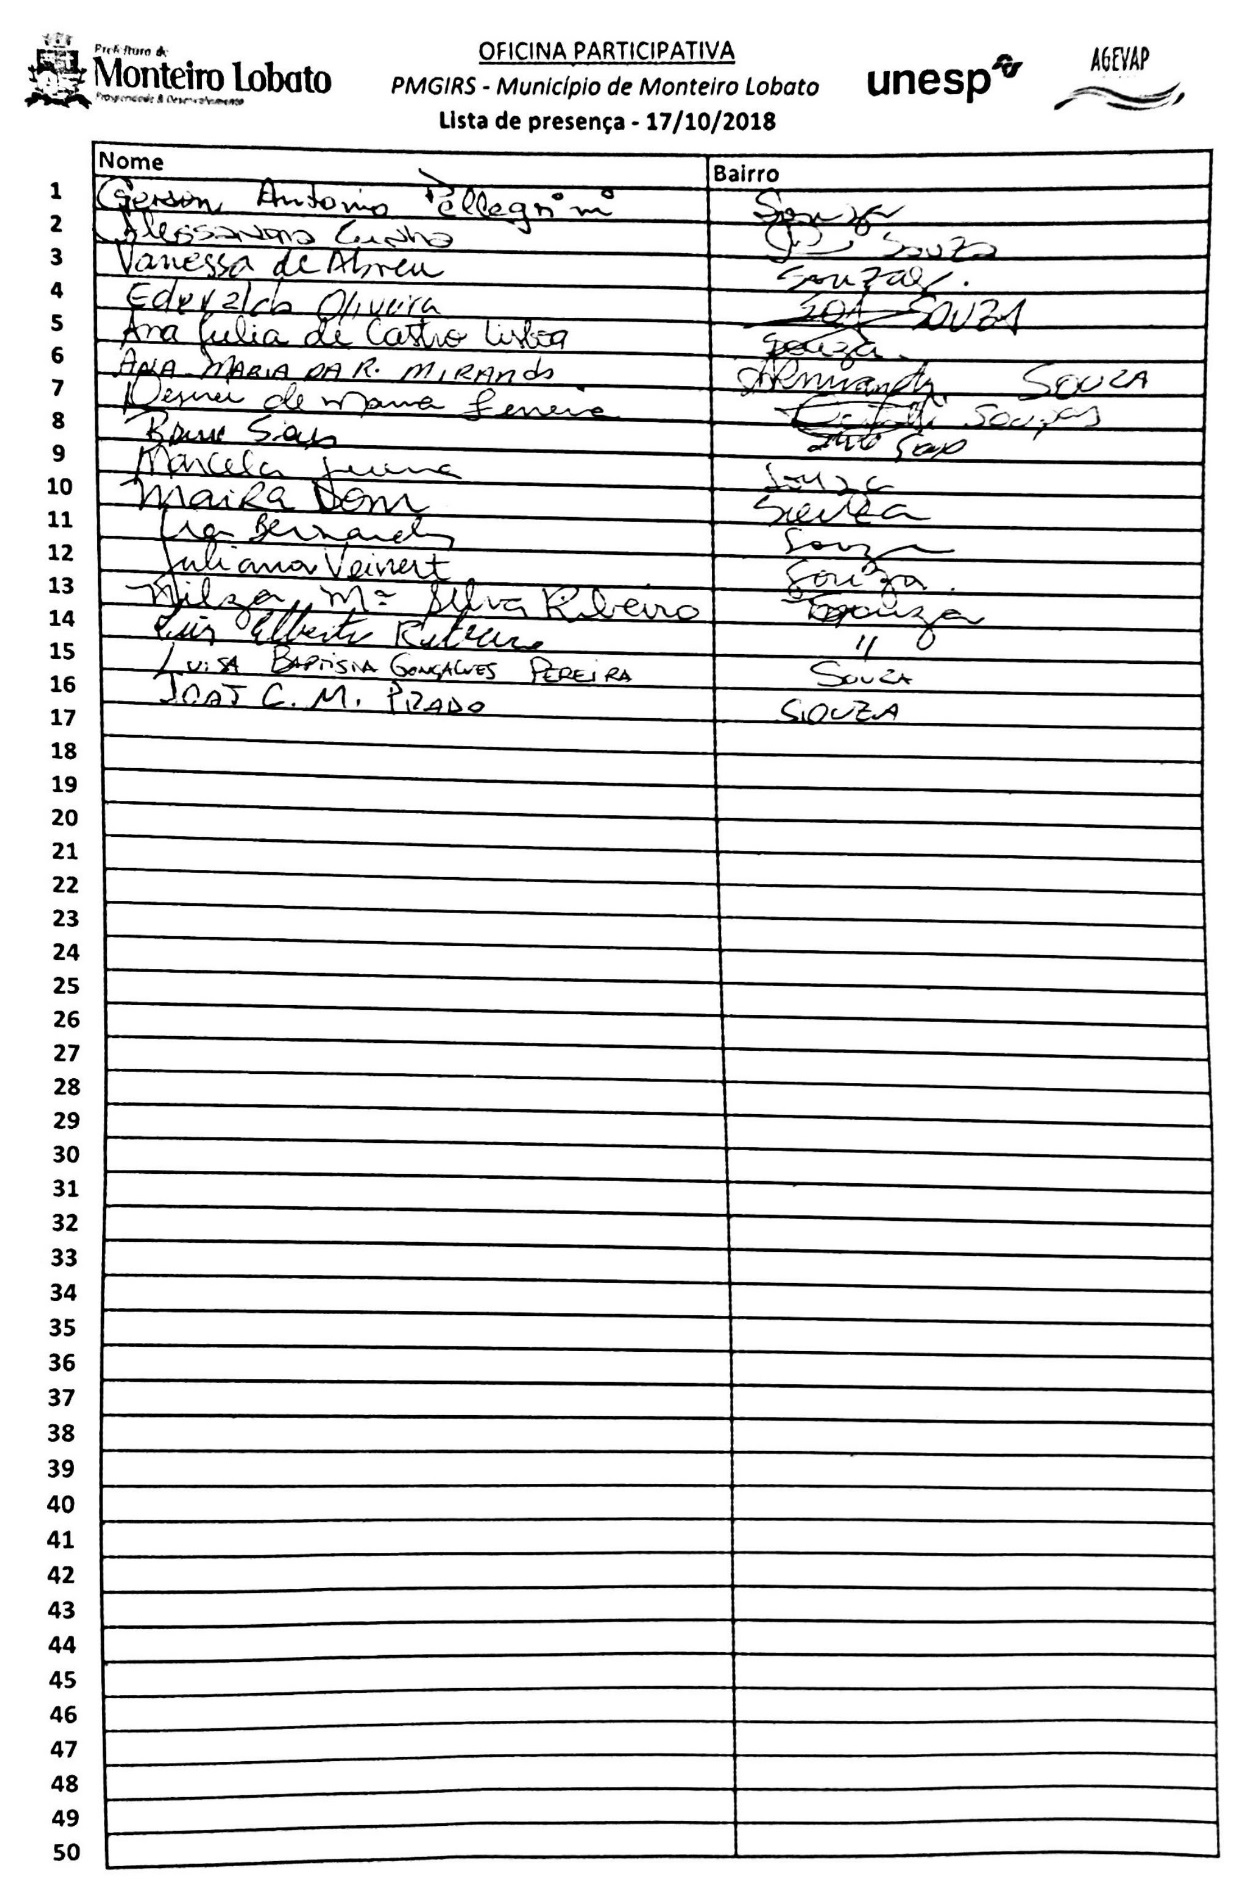 Prefeitura de
Monteiro Lobato
Prosperidade & Desenvolvimento
OFICINA PARTICIPATIVA
PMGIRS - Município de Monteiro Lobato
Lista de presença - 17/10/2018
unesp
AGEVAP
Nome Bairro
1 Gerson Antonio Pellegrini Souza
2 Alessandra Cunha Souza
3 Vanessa de Abreu Souzas.
4 Edevaldo Oliveira SOUZA
5 Ana Julia de Castro Lisboa Souza.
6 ANA MARIA DA R. MIRANDA SOUZA
7 de Souzas
8
9 Marcela Souza
10 Maira Souza
11 Bernardes Souza
12 Juliana Veinert Souza.
13 Nilza Mª Silva Ribeiro Souza
14 Luis "
15 LUISA BAPTISTA GONÇALVES PEREIRA SOUZA
16 C. M. SOUZA
17
18
19
20
21
22
23
24
25
26
27
28
29
30
31
32
33
34
35
36
37
38
39
40
41
42
43
44
45
46
47
48
49
50